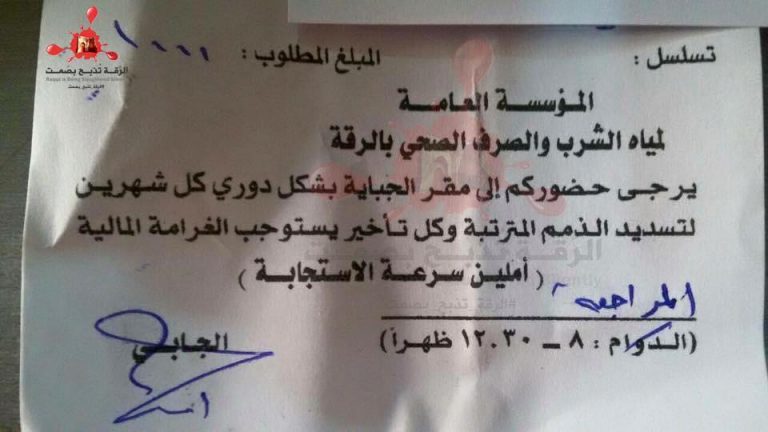 تسلسل :
المبلغ المطلوب :
المؤسسة العامة
لمياه الشرب والصرف الصحي بالرقة
يرجى حضوركم إلى مقر الجباية بشكل دوري كل شهرين
لتسديد الذمم المترتبة وكل تأخير يستوجب الغرامة المالية
( أملين سرعة الاستجابة )
المراجعه
(الدوام : ٨ ــ ١٢.٣٠ ظهراً)
الجابي
الرقة تذبح بصمت
Raqqa is Being Slaughtered Silently
#الرقة_تذبح_بصمت
الرقة تذبح بصمت
#الرقة_تذبح_بصمت